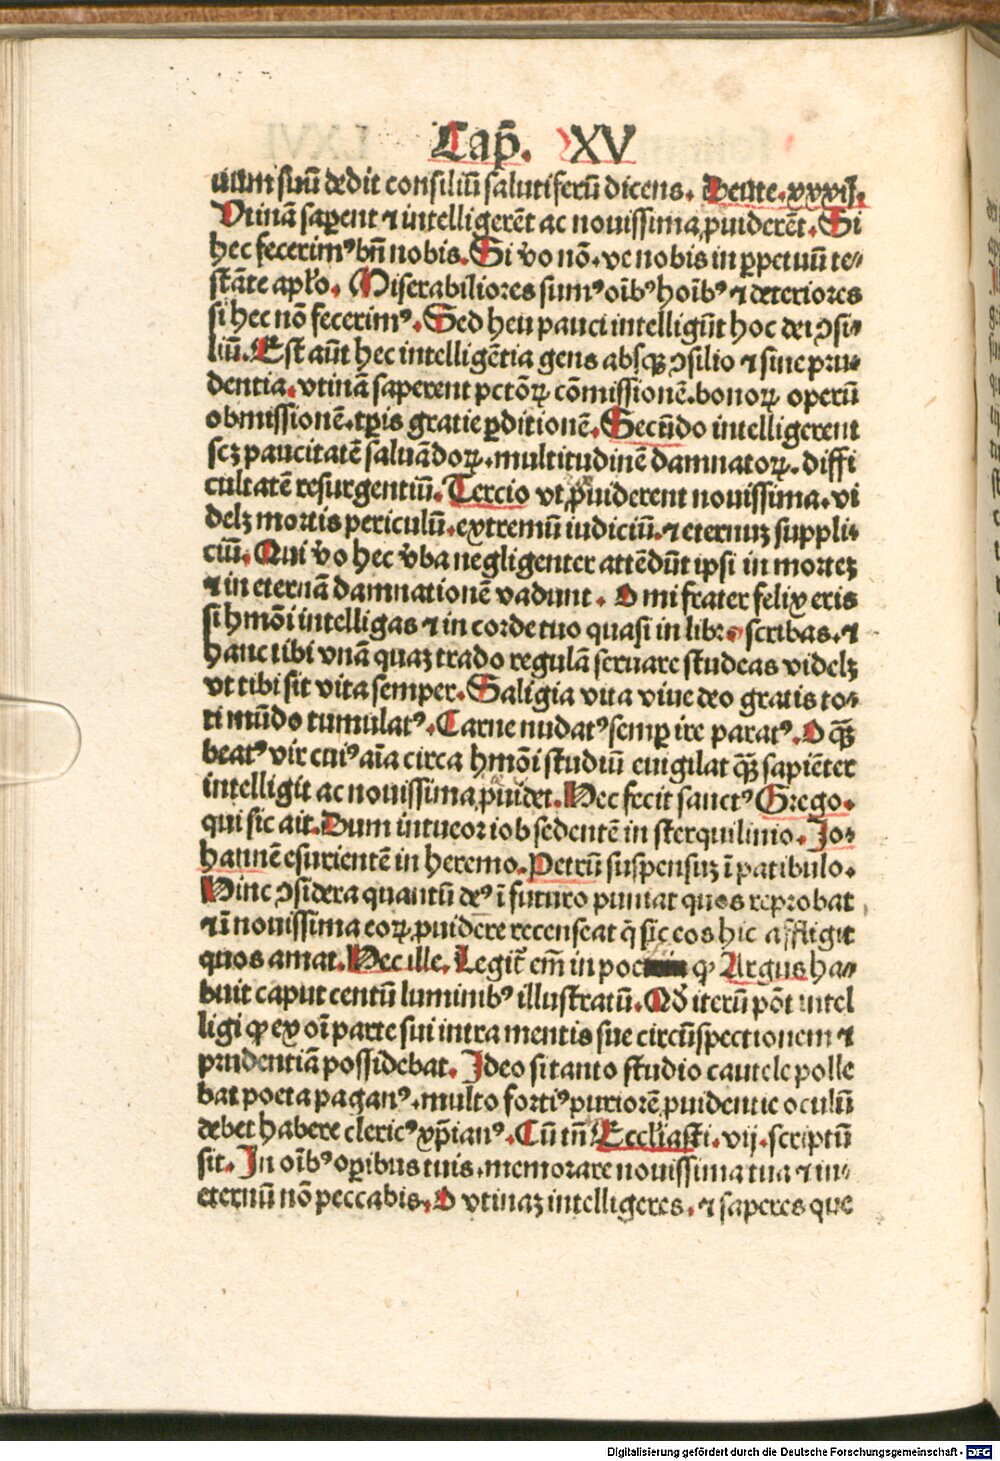 Cap̄. XV
uum suū dedit consiliū salutiferū dicens. Deute. xxxij.
Vtinā saꝑent ⁊ intelligerēt ac nouissima ꝓuiderēt. Si
hec fecerimꝰ bn̄ nobis. Si v̾o nō. ve nobis in ꝑpetuū te⸗
stāte apl̓o. Miserabiliores sumꝰ oīb⁹ hoīb⁹ ⁊ deteriores
si hec nō fecerimꝰ. Sed heu pauci intelligūt hoc dei ↄsi⸗
liū. Est aūt hec intelligētia gens absqꝫ ↄsilio ⁊ sine pru⸗
dentia. vtinā saperent pctōꝝ cōmissionē. bonoꝝ operū
obmissionē. tꝑis gratie ꝑditionē. Secūdo intelligerent
scꝫ paucitatē saluādoꝝ. multitudinē damnatoꝝ. diffi
cultatē resurgentiū. Tercio vt ꝓuiderent nouissima. vi
delꝫ mortis periculū. extremū iudiciū. ⁊ eternuꝫ suppli⸗
ciū. Qui v̾o hec v̾ba negligenter attēdūt ipsi in morteꝫ
⁊ in eternā damnationē vadunt. O mi frater felix eris
si hmōi intelligas ⁊ in corde tuo quasi in libro scribas. ⁊
hanc tibi vnā quaꝫ trado regulā seruare studeas videlꝫ
vt tibi sit vita semper. Saligia vita viue deo gratis to⸗
ti mūdo tumulatꝰ. Carne nudatꝰ semꝑ ire paratꝰ. O qꝫ̄
beatꝰ vir cuiꝰ aīa circa hmōi studiū euigilat qꝫ̄ sapiēter
intelligit ac nouissima ꝓuidet. Hec fecit sanctꝰ Grego.
qui sic ait. Dum intueor iob sedentē in sterquilinio. Jo⸗
hannē esurientē in heremo. Petrū suspensuꝫ ī patibulo.
Hinc ↄsidera quantū deꝰ ī futuro puniat quos reprobat
⁊ ī nouissima eoꝝ ꝓuidere recenseat q̄ sic eos hic affligit
quos amat. Hec ille. Legit̄ em̄ in poe ꝙ Argus ha⸗
buit caput centū luminibꝰ illustratū. Qđ iterū pōt intel
ligi ꝙ ex oī parte sui intra mentis sue circūspectionem ⁊
prudentiā possidebat. Jdeo si tanto studio cautele polle
bat poeta paganꝰ. multo fortiꝰ puriorē ꝓuidentie oculū
debet habere clericꝰ xp̄ianꝰ. Cū tn̄ Eccl̓iasti. vij. scriptū
sit. Jn oībꝰ oꝑibus tuis. memorare nouissima tua ⁊ in⸗
eternū nō peccabis. O vtinaꝫ intelligeres. ⁊ saperes que
Digitalisierung gefördert durch die Deutsche Forschungsgemeinschaft - DFG